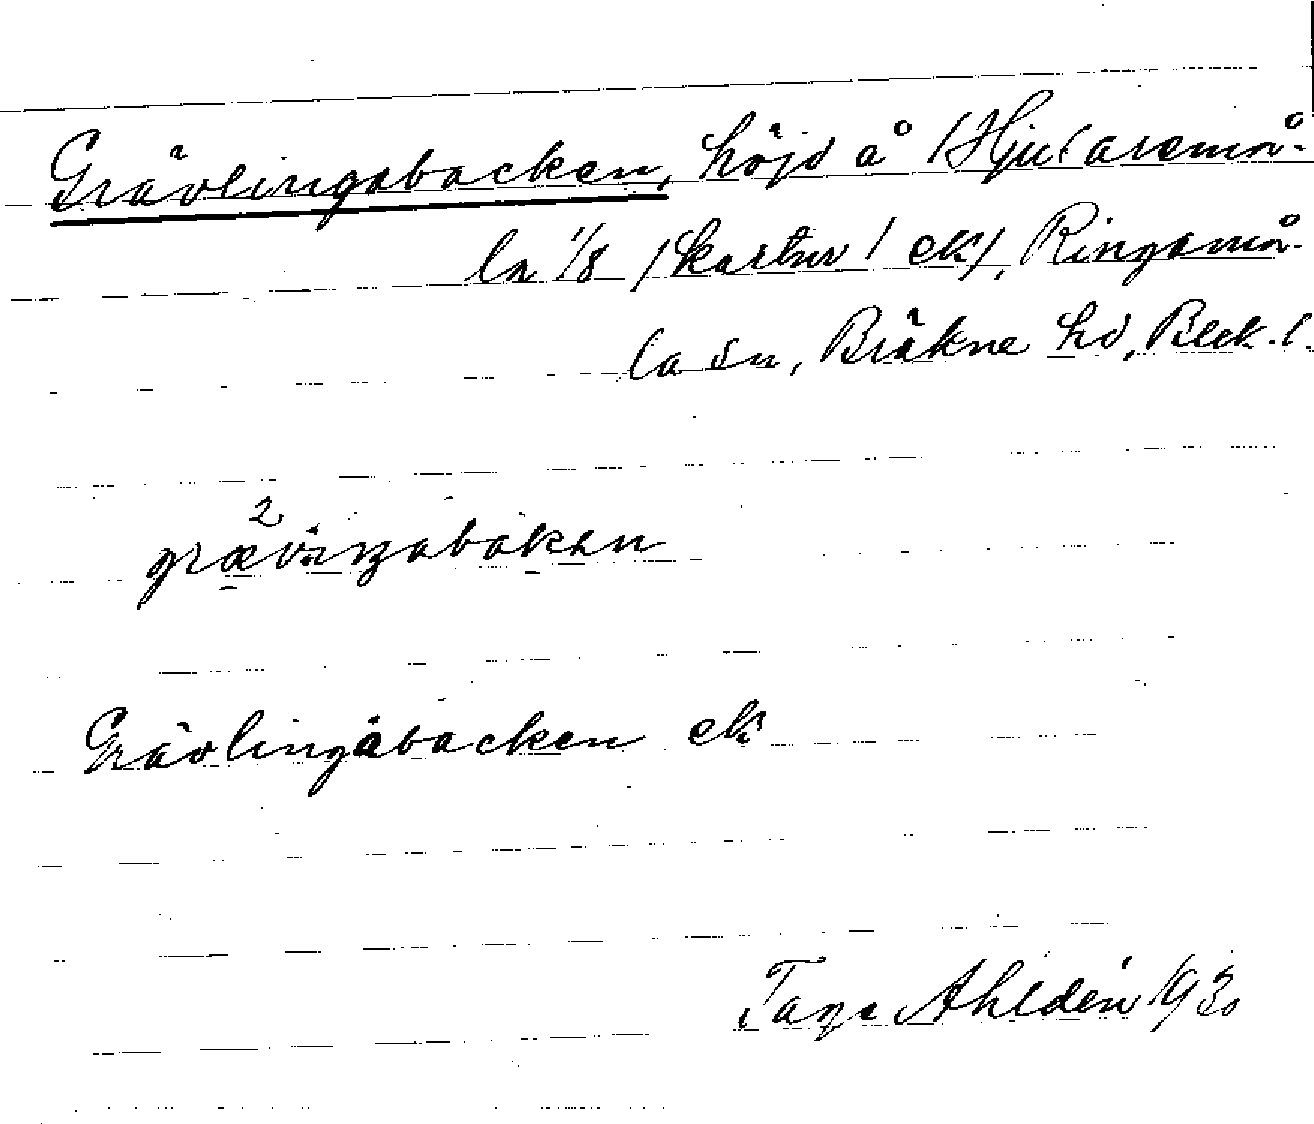 Grävlingabacken, höjd å Hjularemå-
la 1/8 /kartav/ ek/, Ringamå-
la sn, Bräkne hd, Blek. l.
Grävlingabacken ek
Tage Ahldén 1930